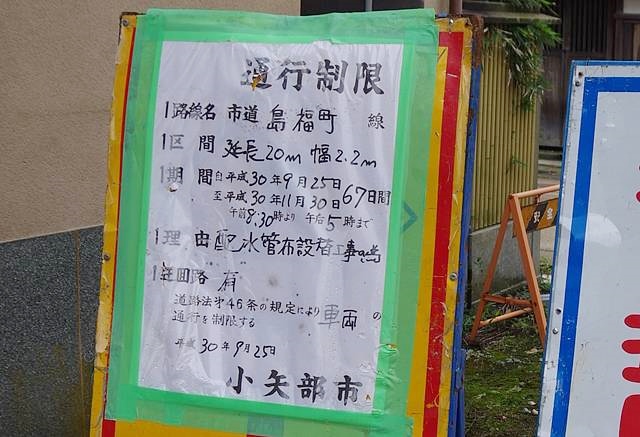 通行制限
1路線名 市道 島福町 線
1区間 延長20m 幅2.2m
1期間 自平成30年9月25日
至平成30年11月30日 67日間
午前8:30時より 午后5時まで
1理由 配水管布設替工事の為
1迂回路 有
道路法第46条の規定により 車両の
通行を制限する
平成30年9月25日
小矢部市
安全